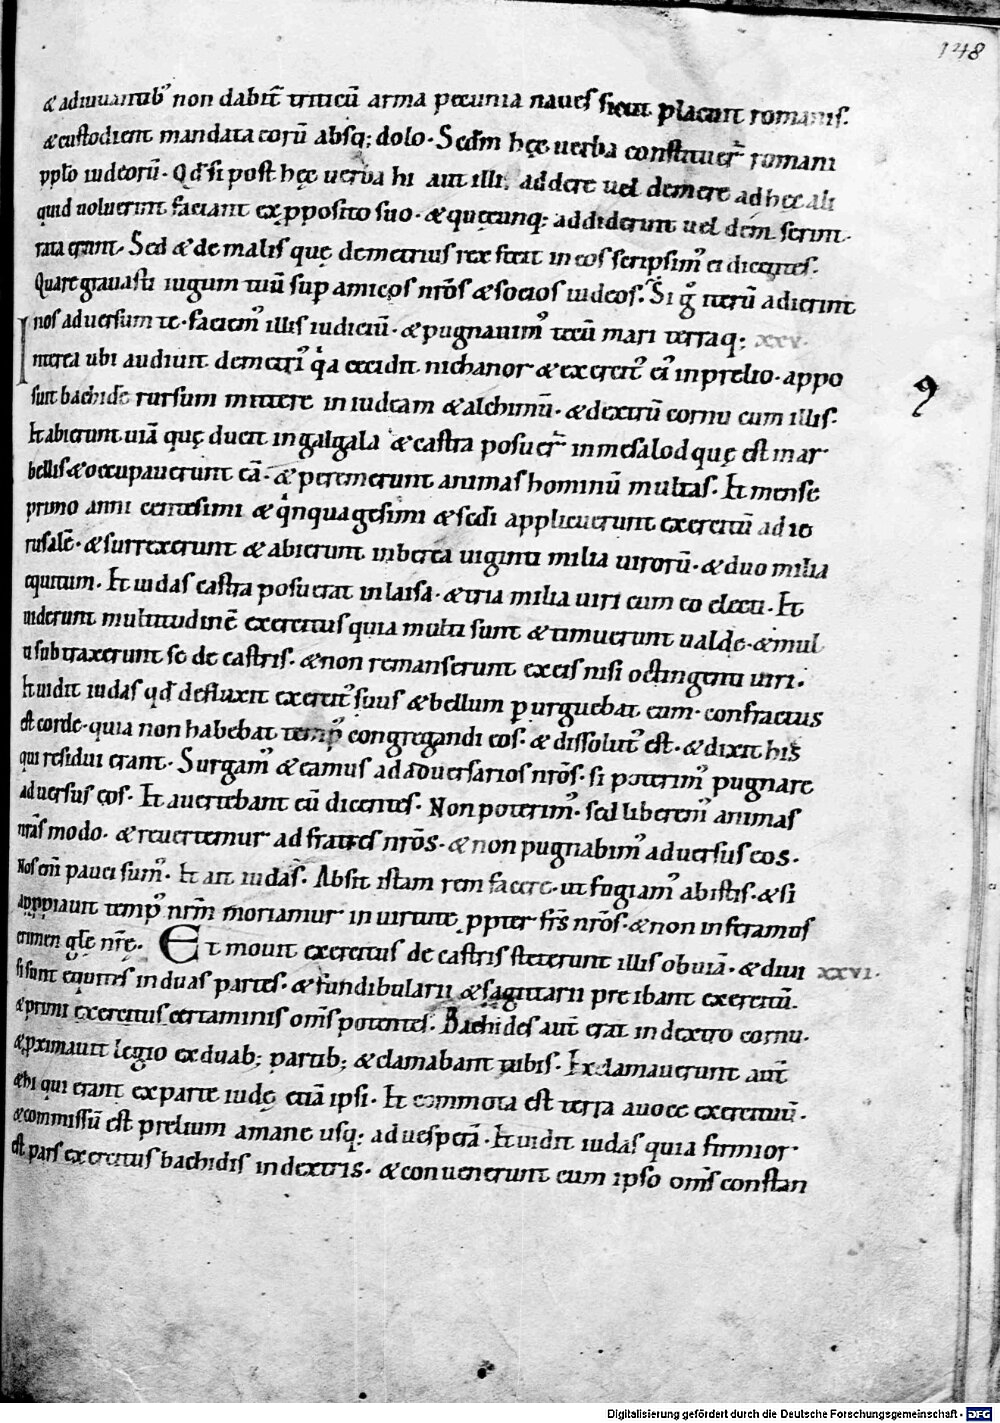 148
& adiuuantib' non dabit̄ triticū arma pecunia naues sicut placuit romanis.
& custodient mandata eorū absq; dolo. Scdm hęc uerba constituer̄ romani
pplo iudeorū. Qd̄ si post hęc uerba hi aut illi, addere uel demere ad hęc ali
quid uoluerint faciant ex pposito suo. & quęcunq; addiderunt uel dem serint.
rata erunt. Sed & de malis quę demetrius rex fecit in eos scripsim' ei dicentes.
Quare grauasti iugum tuū sup amicos nr̄os & socios iudeos. Si g̊ iterū adierint
nos aduersum te. faciem' illis iudiciū. & pugnauim' tecū mari terraq; xxv.
Interea ubi audiuit demetri' q̊a cecidit nichanor & exercit' ei' in prelio. appo
suit bachidē rursum mittere in iudeam & alchimū. & dextrū cornu cum illis.
Et abierunt uiā quę ducit in galgala & castra posuer̄ in mesalod quę est in ar
bellis & occupauerunt eā. & peremerunt animas hominū multas. Et mense
primo anni centesimi & q̊nquagesimi & scd̄i applicuerunt exercitū ad ie
rusalē. & surrexerunt & abierunt in berea uiginti milia uirorū. & duo milia
equitum. Et iudas castra posuerat in laisa. & tria milia uiri cum eo electi. Et
uiderunt multitudinē exercitus quia multi sunt & timuerunt ualde. & mul
ti subtraxerunt se de castris. & non remanserunt ex eis nisi octingenti uiri.
Et uidit iudas qd̄ defluxit exercit' suus & bellum p urguebat eum. confractus
est corde. quia non habebat temp' congregandi eos. & dissolut' est. & dixit his
qui residui erant. Surgam' & eamus ad aduersarios nr̄os. si poterim' pugnare
aduersus eos. Et auertebant eū dicentes. Non poterim'. sed liberem' animas
nr̄as modo. & reuertemur ad fratres nr̄os. & non pugnabim' aduersus eos.
Nos eni pauci sum'. Et ait iudas. Absit istam rem facere. ut fugiam' ab istis. & si
apppiauit temp' nr̄m moriamur in uirtute ppter fr̄s nr̄os. & non inferamus
crimen glę nr̄ę. Et mouit exercitus de castris steterunt illis obuiā. & diui xxvi.
si sunt equites in duas partes. & fundibularii & sagittarii preibant exercitū.
& primi exercitus certaminis om̄s potentes. Bachides aut̄ erat in dextro cornu.
& pximauit legio ex duab; partib; & clamabant tubis. Exclamauerunt aut̄
& hi qui erant ex parte iudę etiā ipsi. Et commota est terra a uoce exercituū.
& commissū est prelium a mane usq; ad uesperā. Et uidit iudas quia firmior
est pars exercitus bachidis in dextris. & conuenerunt cum ipso om̄s constan
Digitalisierung gefördert durch die Deutsche Forschungsgemeinschaft - DFG